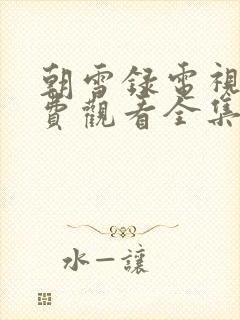 朝雪録電視
費觀看全集
水一讓